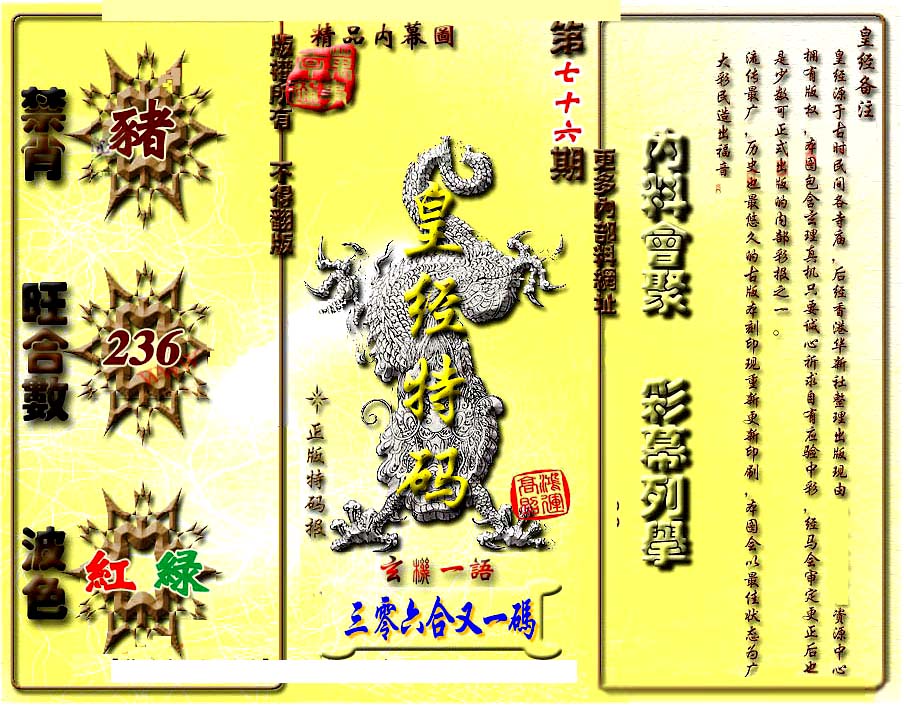 皇经备注
皇经源于古时民间各寺庙，后经香港华新社整理出版现由 资源中心
拥有版权，本图包含玄理真机只要诚心祈求自有应验中彩，经马会审定更正后也
是少数可正式出版的内部彩报之一。
流传最广，历史也最悠久的古版本刻印现重新更新印刷，本图会以最佳状态为广
大彩民造出福音
内料會聚 彩幕列舉
更多內部料網址
第七十六期
精品内幕圖
皇经特码
正版特码报
鴻運高照
玄機一語
三零六合又一碼
版權所有 不得翻版
禁肖
豬
旺合數
236
波色
紅 綠